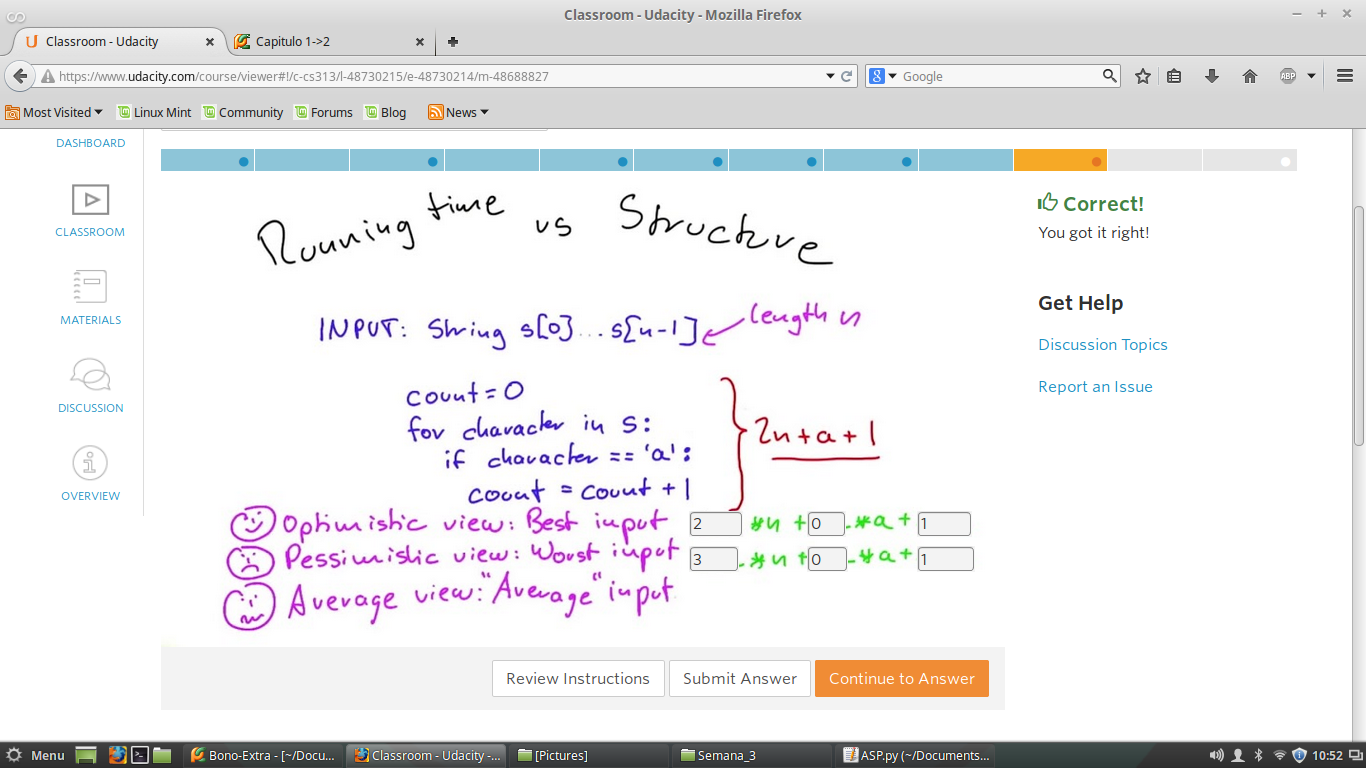 Classroom - Udacity - Mozilla Firefox
Classroom - Udacity
Capitulo 1->2
https://www.udacity.com/course/viewer#!/c-cs313/l-48730215/e-48730214/m-48688827
Google
ABP
Most Visited
Linux Mint
Community
Forums
Blog
News
DASHBOARD
CLASSROOM
MATERIALS
DISCUSSION
OVERVIEW
Running time vs Structure
INPUT: String s[0]...s[n-1] length n
count = 0
for character in s:
if character == 'a':
count = count + 1
2n + a + 1
Optimistic view: Best input 2 *n + 0 *a + 1
Pessimistic view: Worst input 3 *n + 0 *a + 1
Average view: "Average" input
Correct!
You got it right!
Get Help
Discussion Topics
Report an Issue
Review Instructions
Submit Answer
Continue to Answer
Menu
Bono-Extra - [~/Docu...
Classroom - Udacity -...
[Pictures]
Semana_3
ASP.py (~/Documents...
10:52